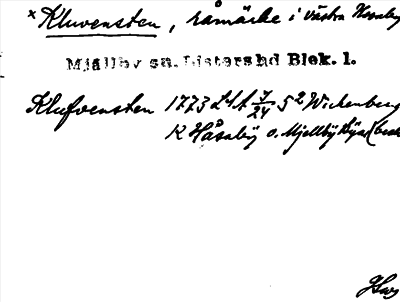 × Kluvensten, råmärke i västra Hosaby
Mjällby sn. Listers hd Blek. l.
Klufvensten 1773 LSA 7/24 5² Wickenberg
K Håsaby o. Mjellby